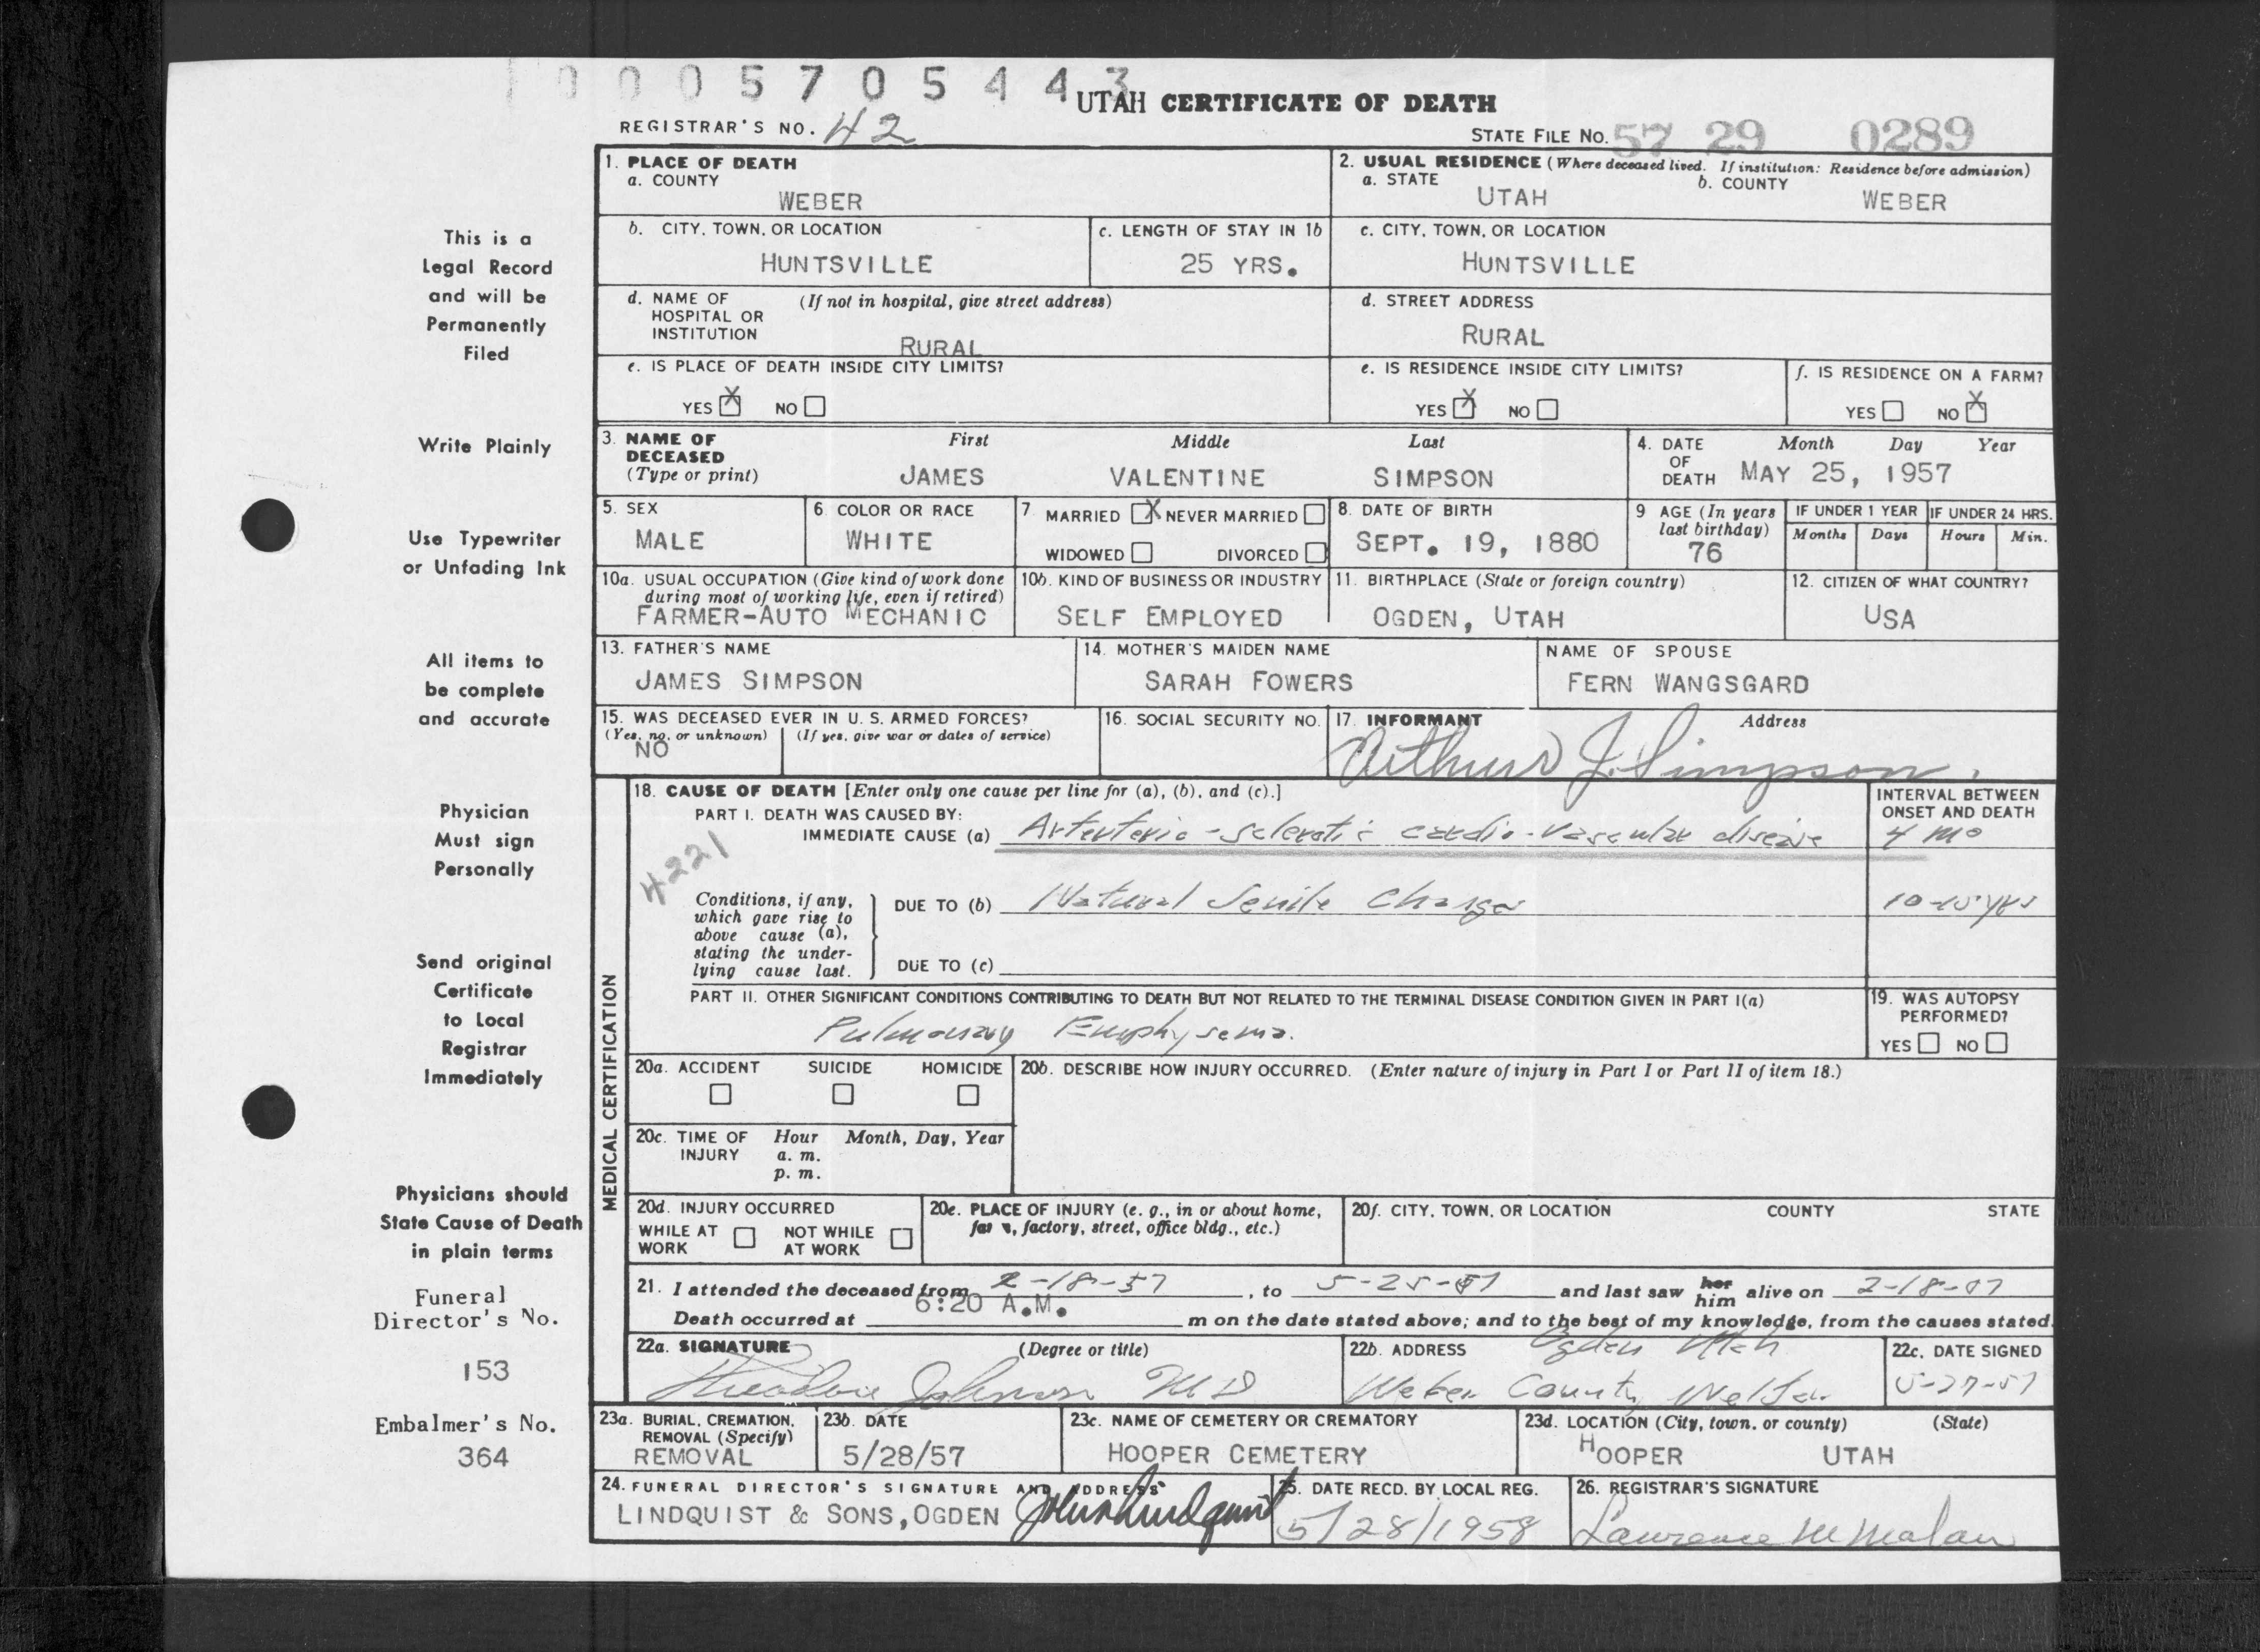 1 0 0 0 5 7 0 5 4 4 3
UTAH CERTIFICATE OF DEATH
REGISTRAR'S NO. 42
STATE FILE NO. 57 29 0289
1. PLACE OF DEATH
a. COUNTY
WEBER
2. USUAL RESIDENCE (Where deceased lived. If institution: Residence before admission)
a. STATE b. COUNTY
UTAH WEBER
b. CITY, TOWN, OR LOCATION c. LENGTH OF STAY IN 1b c. CITY, TOWN, OR LOCATION
HUNTSVILLE 25 YRS. HUNTSVILLE
d. NAME OF HOSPITAL OR INSTITUTION (If not in hospital, give street address) d. STREET ADDRESS
RURAL RURAL
e. IS PLACE OF DEATH INSIDE CITY LIMITS? e. IS RESIDENCE INSIDE CITY LIMITS? f. IS RESIDENCE ON A FARM?
YES X NO YES X NO YES NO X
3. NAME OF DECEASED (Type or print) First Middle Last 4. DATE OF DEATH Month Day Year
JAMES VALENTINE SIMPSON MAY 25, 1957
5. SEX 6 COLOR OR RACE 7 MARRIED X NEVER MARRIED 8. DATE OF BIRTH 9 AGE (In years last birthday) IF UNDER 1 YEAR IF UNDER 24 HRS.
Months Days Hours Min.
MALE WHITE WIDOWED DIVORCED SEPT. 19, 1880 76
10a. USUAL OCCUPATION (Give kind of work done during most of working life, even if retired) 10b. KIND OF BUSINESS OR INDUSTRY 11. BIRTHPLACE (State or foreign country) 12. CITIZEN OF WHAT COUNTRY?
FARMER-AUTO MECHANIC SELF EMPLOYED OGDEN, UTAH USA
13. FATHER'S NAME 14. MOTHER'S MAIDEN NAME NAME OF SPOUSE
JAMES SIMPSON SARAH FOWERS FERN WANGSGARD
15. WAS DECEASED EVER IN U. S. ARMED FORCES? 16. SOCIAL SECURITY NO. 17. INFORMANT Address
(Yes, no, or unknown) (If yes, give war or dates of service)
NO Arthur J. Simpson.
MEDICAL CERTIFICATION
18. CAUSE OF DEATH [Enter only one cause per line for (a), (b), and (c).] INTERVAL BETWEEN ONSET AND DEATH
PART I. DEATH WAS CAUSED BY:
IMMEDIATE CAUSE (a) Arterterio-sclerotic cardio-vascular disease 4 mo
4221
Conditions, if any, which gave rise to above cause (a), stating the underlying cause last.
DUE TO (b) Natural Senile Changes 10-15 yrs
DUE TO (c)
PART II. OTHER SIGNIFICANT CONDITIONS CONTRIBUTING TO DEATH BUT NOT RELATED TO THE TERMINAL DISEASE CONDITION GIVEN IN PART I(a)
Pulmonary Emphysema.
19. WAS AUTOPSY PERFORMED?
YES NO
20a. ACCIDENT SUICIDE HOMICIDE 20b. DESCRIBE HOW INJURY OCCURRED. (Enter nature of injury in Part I or Part II of item 18.)
20c. TIME OF INJURY Hour Month, Day, Year
a. m.
p. m.
20d. INJURY OCCURRED 20e. PLACE OF INJURY (e. g., in or about home, farm, factory, street, office bldg., etc.) 20f. CITY, TOWN, OR LOCATION COUNTY STATE
WHILE AT WORK NOT WHILE AT WORK
21. I attended the deceased from 2-18-57, to 5-25-57 and last saw her him alive on 2-18-57
6:20 A.M.
Death occurred at m on the date stated above; and to the best of my knowledge, from the causes stated.
22a. SIGNATURE (Degree or title) 22b. ADDRESS Ogden Utah 22c. DATE SIGNED
Theodore Johnson MD Weber County Welfare 5-27-57
23a. BURIAL, CREMATION, REMOVAL (Specify) 23b. DATE 23c. NAME OF CEMETERY OR CREMATORY 23d. LOCATION (City, town, or county) (State)
REMOVAL 5/28/57 HOOPER CEMETERY HOOPER UTAH
24. FUNERAL DIRECTOR'S SIGNATURE AND ADDRESS 25. DATE RECD. BY LOCAL REG. 26. REGISTRAR'S SIGNATURE
LINDQUIST & SONS, OGDEN John Lindquist 5/28/1958 Lawrence M Malan
This is a
Legal Record
and will be
Permanently
Filed
Write Plainly
Use Typewriter
or Unfading Ink
All items to
be complete
and accurate
Physician
Must sign
Personally
Send original
Certificate
to Local
Registrar
Immediately
Physicians should
State Cause of Death
in plain terms
Funeral
Director's No.
153
Embalmer's No.
364